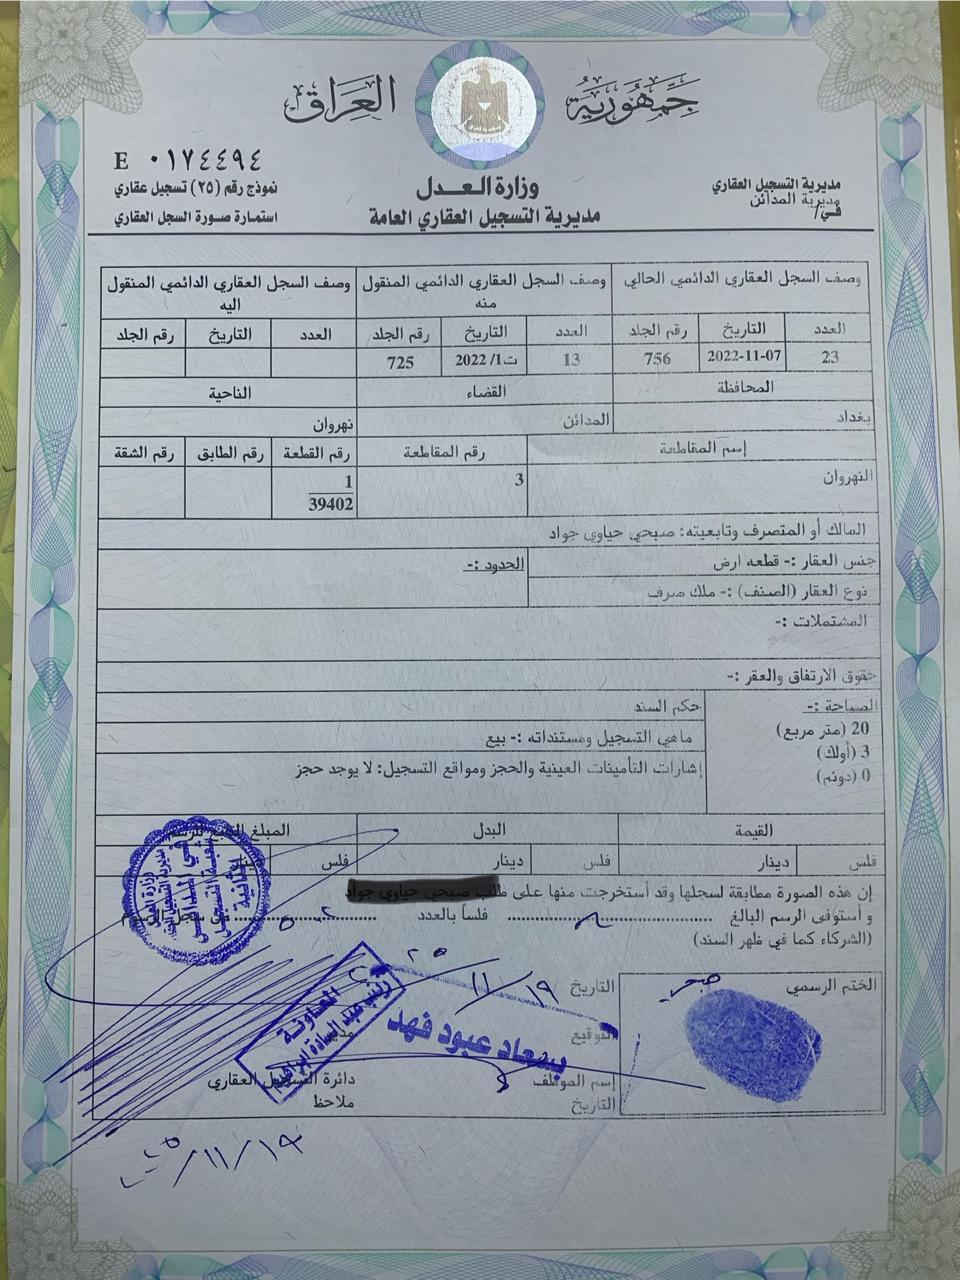 جمهورية العراق
E ٠١٧٤٤٩٤
وزارة العدل
مديرية التسجيل العقاري العامة
مديرية التسجيل العقاري
في/ مديرية المدائن
نموذج رقم (٢٥) تسجيل عقاري
استمارة صورة السجل العقاري
وصف السجل العقاري الدائمي الحالي وصف السجل العقاري الدائمي المنقول منه وصف السجل العقاري الدائمي المنقول اليه
العدد التاريخ رقم الجلد العدد التاريخ رقم الجلد العدد التاريخ رقم الجلد
23 2022-11-07 756 13 ت1/ 2022 725
المحافظة القضاء الناحية
بغداد المدائن نهروان
إسم المقاطعة رقم المقاطعة رقم القطعة رقم الطابق رقم الشقة
النهروان 3 1
39402
المالك أو المتصرف وتابعيته: صبحي حياوي جواد
جنس العقار :- قطعه ارض الحدود :-
نوع العقار (الصنف) :- ملك صرف
المشتملات :-
حقوق الارتفاق والعقر :-
المساحة :- حكم السند
20 (متر مربع) ماهي التسجيل ومستنداته :- بيع
3 (أولك) إشارات التأمينات العينية والحجز ومواقع التسجيل: لا يوجد حجز
0 (دونم)
القيمة البدل المبلغ
فلس دينار فلس دينار فلس
إن هذه الصورة مطابقة لسجلها وقد أستخرجت منها على طلب صبحي حياوي جواد
و أستوفى الرسم البالغ فلساً بالعدد
(الشركاء كما في ظهر السند)
الختم الرسمي التاريخ ١٩/١١
التوقيع
سعاد عبود فهد
المعاونة
إسم الموظف دائرة التسجيل العقاري
التاريخ ملاحظ
١٩/١١/